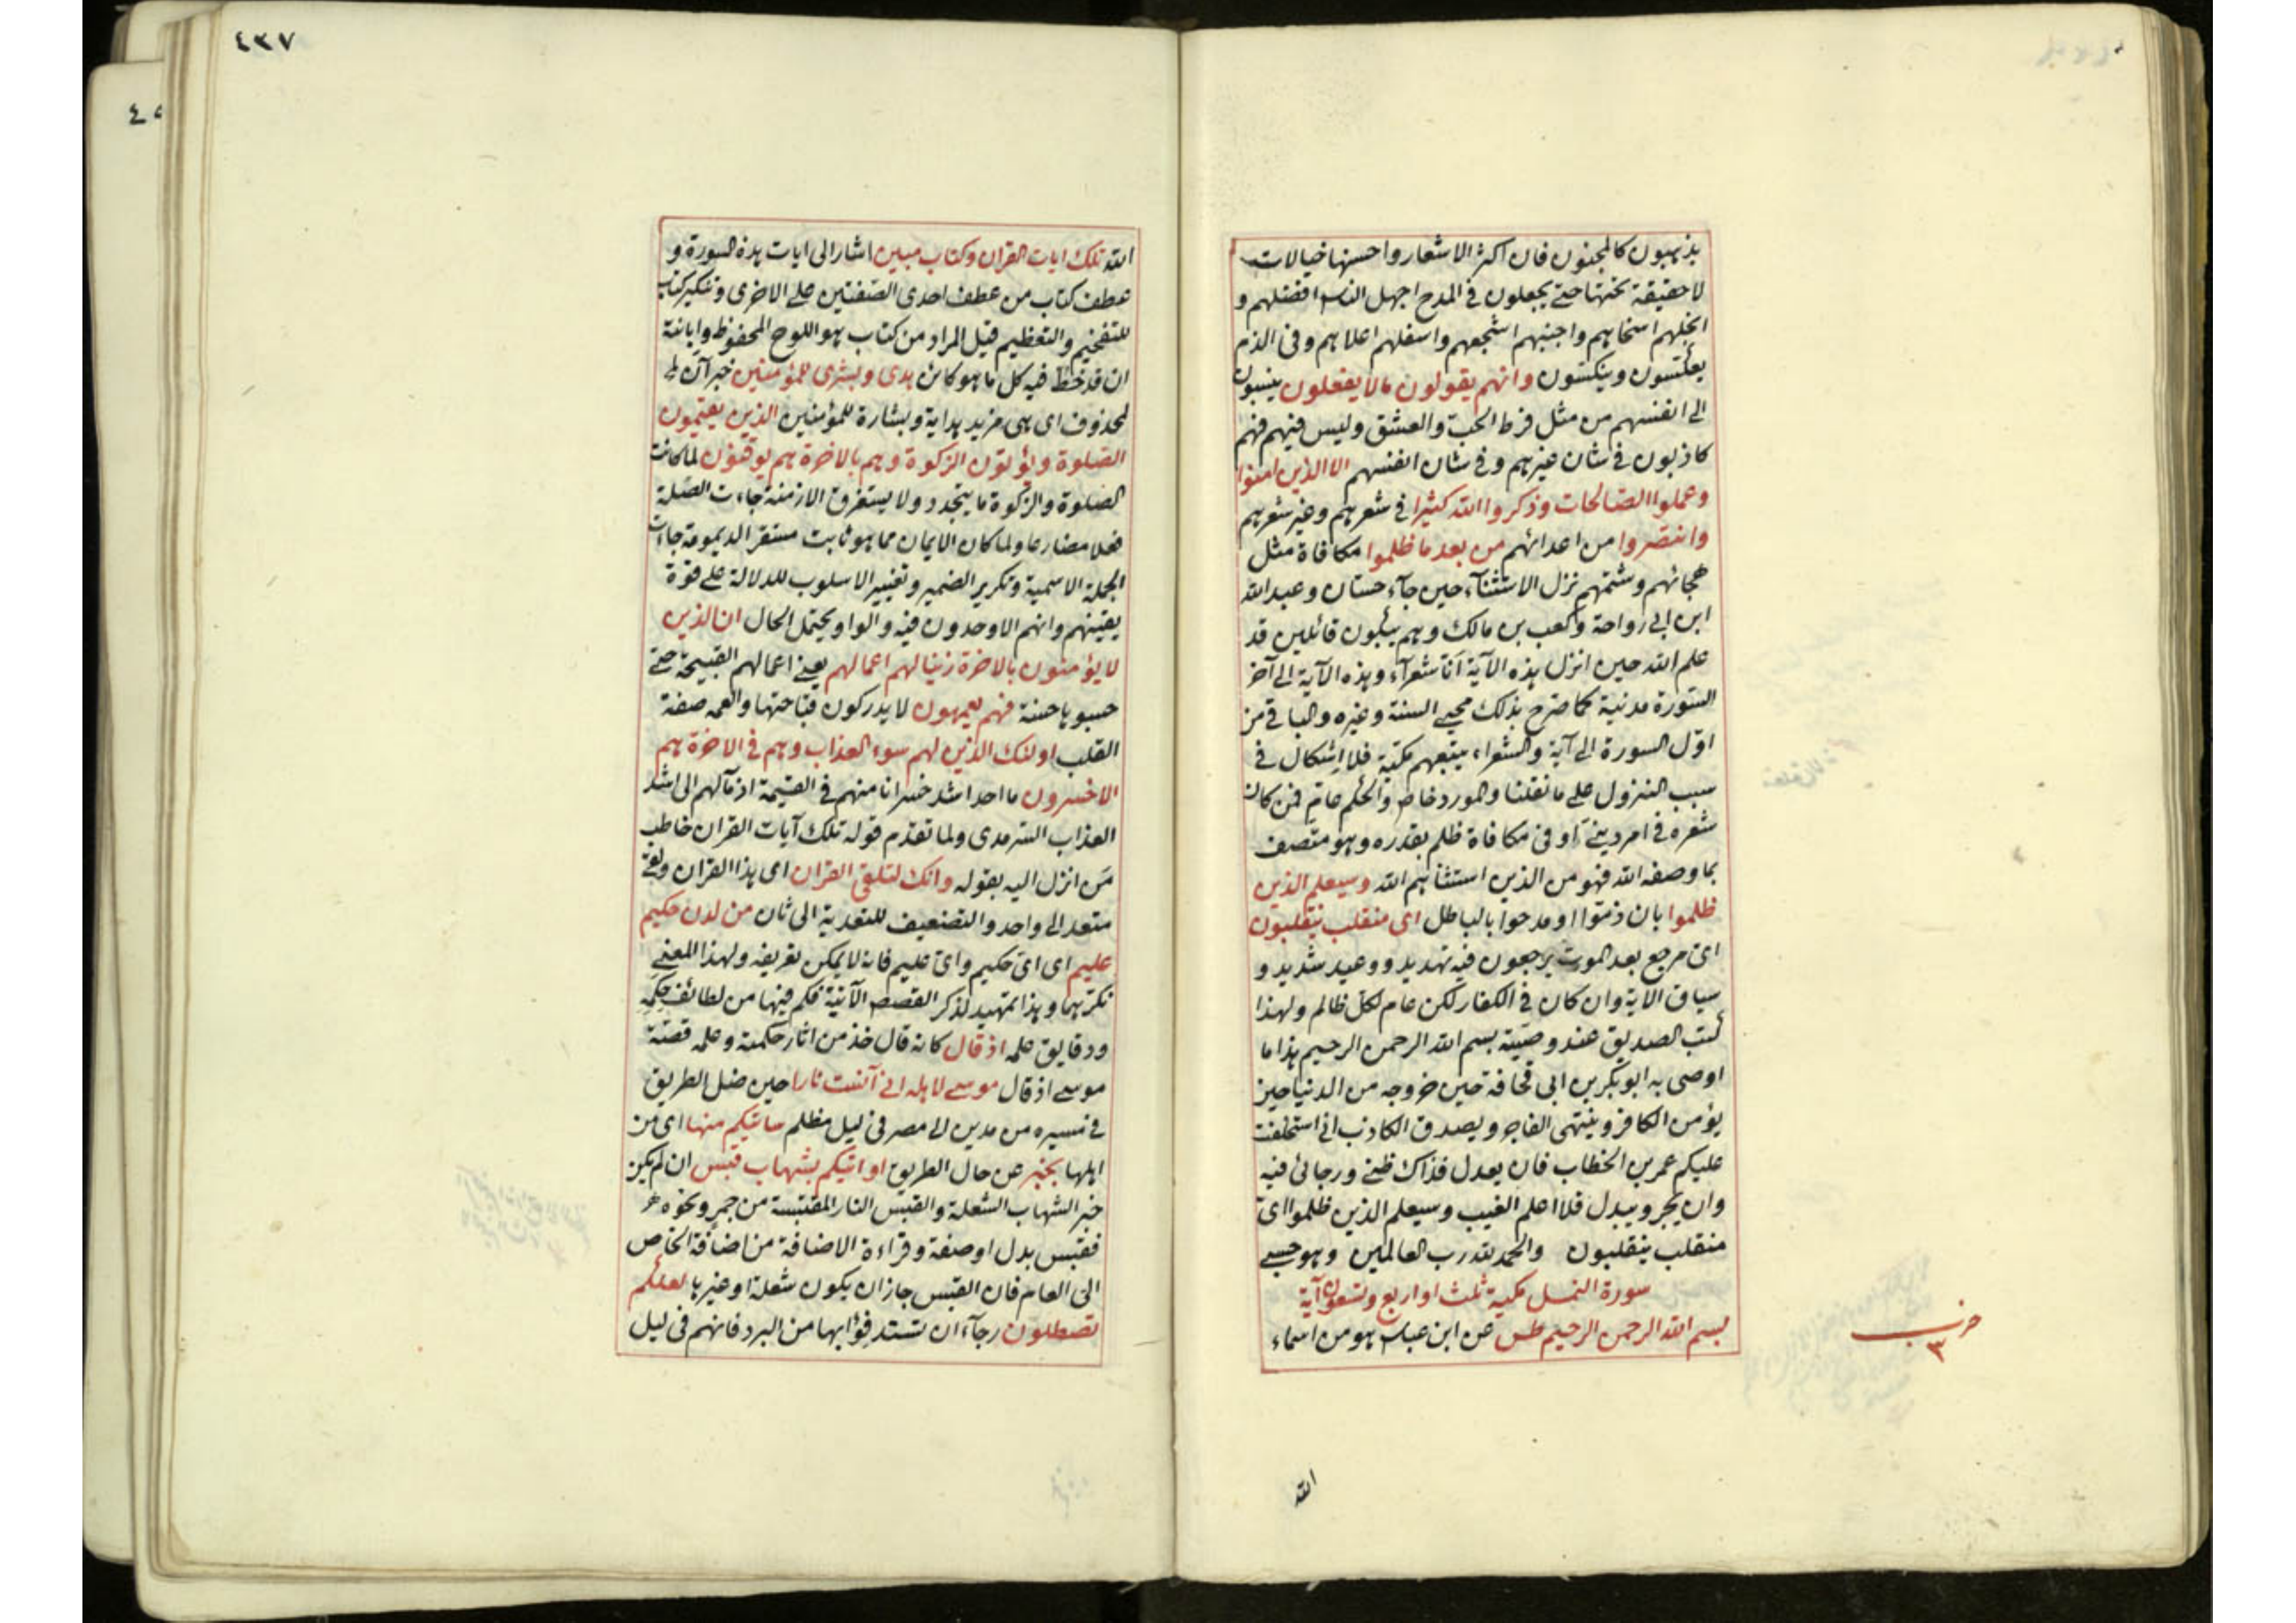 يذهبون كالمجنون فان اكثر الاشعار واحسنها خيالات
لا حقيقة تحتها حتى يجعلون في المدح اجهل الناس افضلهم و
ابخلهم اسخاهم واجبنهم اشجعهم واسفلهم اعلاهم وفي الذم
يعكسون وينكسون وانهم يقولون مالا يفعلون ينسبون
الى انفسهم من مثل فرط الحب والعشق وليس فيهم فهم
كاذبون في شان غيرهم وفي شان انفسهم الا الذين امنوا
وعملوا الصالحات وذكروا الله كثيرا في شعرهم وغير شعرهم
وانتصروا من اعدائهم من بعد ما ظلموا مكافاة مثل
هجائهم وشتمهم نزل الاستثناء حين جاء حسان وعبد الله
ابن ابي رواحة وكعب بن مالك وهم يبكون قائلين قد
علم الله حين انزل هذه الآية انا شعرآء وهذه الآية الى آخر
السورة مدنية كما صرح بذلك محيى السنة وغيره والباقي من
اول السورة الى آية والشعراء يتبعهم مكية فلا اشكال في
سبب النزول على ما نقلنا والمورد خاص والحكم عام فمن كان
شعره في امر ديني او في مكافاة ظلم بقدره وهو متصف
بما وصفه الله فهو من الذين استثناهم الله وسيعلم الذين
ظلموا بان ذموا او مدحوا بالباطل اى منقلب ينقلبون
اى مرجع بعد الموت يرجعون فيه تهديد ووعيد شديد و
سياق الاية وان كان في الكفار لكن عام لكل ظالم ولهذا
كتب الصديق عند وصيته بسم الله الرحمن الرحيم هذا ما
اوصى به ابو بكر بن ابى قحافة حين خروجه من الدنيا حين
يؤمن الكافر وينتهى الفاجر ويصدق الكاذب انى استخلفت
عليكم عمر بن الخطاب فان يعدل فذاك ظنى ورجائى فيه
وان يجر ويبدل فلا اعلم الغيب وسيعلم الذين ظلموا اى
منقلب ينقلبون والحمد لله رب العالمين وهو حسبى
سورة النمل مكية ثلث او اربع وتسعون آية
بسم الله الرحمن الرحيم طس عن ابن عباس هو من اسماء
حزب
٣
الله
٤٣٧
الله تلك ايات القران وكتاب مبين اشار الى ايات هذه السورة و
عطف كتاب من عطف احدى الصفتين على الاخرى وتنكير كتاب
للتفخيم والتعظيم قيل المراد من كتاب هو اللوح المحفوظ وابانته
ان قد خط فيه كل ما هو كائن هدى وبشرى للمؤمنين خبر آن
لمحذوف اى هى مزيد هداية وبشارة للمؤمنين الذين يقيمون
الصلوة ويؤتون الزكوة وهم بالاخرة هم يوقنون لما كانت
الصلوة والزكوة ما يتجدد ولا يستغرق الازمنة جاءت الصلة
فعلا مضارعا ولما كان الايمان مما هو ثابت مستقر الديمومة جاءت
الجملة الاسمية وتكرير الضمير وتغيير الاسلوب للدلالة على قوة
يقينهم وانهم الاوحدون فيه والواو يحتمل الحال ان الذين
لا يؤمنون بالاخرة زينا لهم اعمالهم يعنى اعمالهم القبيحة حتى
حسبوها حسنة فهم يعمهون لا يدركون قباحتها والعمه صفة
القلب اولئك الذين لهم سوء العذاب وهم في الاخرة هم
الاخسرون ما احد اشد خسرانا منهم في القيمة اذ مآلهم الى اشد
العذاب السرمدى ولما تقدم قوله تلك آيات القران خاطب
من انزل اليه بقوله وانك لتلقى القران اى هذا القران ولقى
متعد الى واحد والتضعيف للتعدية الى ثان من لدن حكيم
عليم اى اى حكيم واى عليم فانه لا يمكن تعريفه ولهذا المعنى
نكرهما وهذا تمهيد لذكر القصص الآتية فكم فيها من لطائف حكمه
ودقايق علمه اذ قال كانه قال خذ من اثار حكمته وعلمه قصة
موسى اذ قال موسى لاهله انى آنست نارا حين ضل الطريق
في مسيره من مدين الى مصر في ليل مظلم ساتيكم منها اى من
اهلها بخبر عن حال الطريق او اتيكم بشهاب قبس ان لم يكن
خبر الشهاب الشعلة والقبس النار المقتبسة من جمر ونحوه
فقبس بدل او صفة وقراءة الاضافة من اضافة الخاص
الى العام فان القبس جاز ان يكون شعلة او غيرها لعلكم
تصطلون رجآء ان تستدفؤا بها من البرد فانهم في ليل